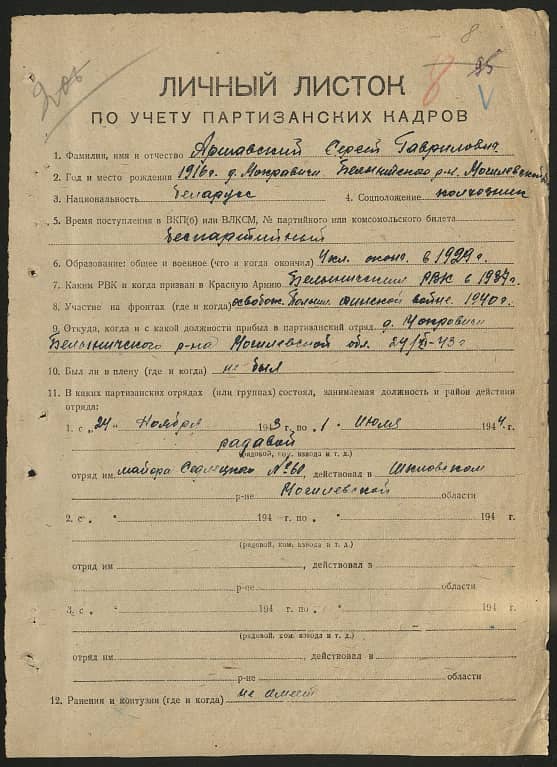 8
8 25
V
ЛИЧНЫЙ ЛИСТОК
ПО УЧЕТУ ПАРТИЗАНСКИХ КАДРОВ
1. Фамилия, имя и отчество Аршавский Сергей Гаврилович
2. Год и место рождения 1916 г. д. Мокравичи Белыничского р-н. Могилевской
3. Национальность Беларус 4. Соцположение колхозник
5. Время поступления в ВКП(б) или ВЛКСМ, № партийного или комсомольского билета
беспартийный
6. Образование: общее и военное (что и когда окончил) 4 кл. оконч. в 1929 г.
7. Каким РВК и когда призван в Красную Армию Белыничским РВК в 1937 г.
8. Участие на фронтах (где и когда) освобож. Польши финской войне 1940 г.
9. Откуда, когда и с какой должности прибыл в партизанский отряд д. Мокравичи
Белыничского р-на Могилевской обл. 24/XI-43 г.
10. Был ли в плену (где и когда) не был
11. В каких партизанских отрядах (или группах) состоял, занимаемая должность и район действия
отряда:
1. с „24“ Ноября 1943 г. по „1“ Июля 1944 г.
радавой
(рядовой, ком. взвода и т. д.)
отряд им. майора №61, действовал в Шкловском
р-не Могилевской области
2. с „ “ 194 г. по „ “ 194 г.
(рядовой, ком. взвода и т. д.)
отряд им. , действовал в
р-не области
3. с „ “ 194 г. по „ “ 194 г.
(рядовой, ком. взвода и т. д.)
отряд им. , действовал в
р-не области
12. Ранения и контузии (где и когда) не имеет